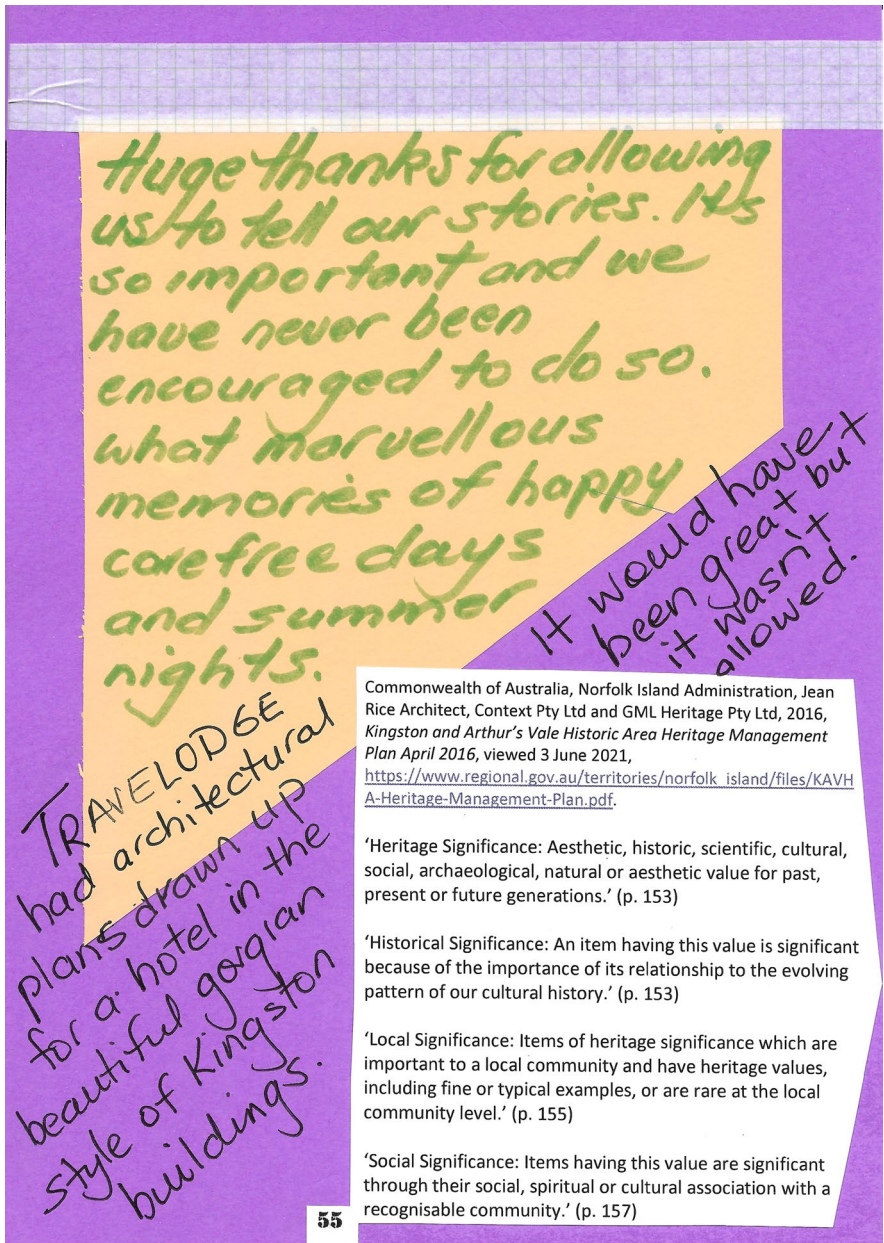 Huge thanks for allowing
us to tell our stories. It's
so important and we
have never been
encouraged to do so.
what marvellous
memories of happy
carefree days
and summer
nights.
It would have
been great but
it wasn't
allowed.
TRAVELODGE
had architectural
plans drawn up
for a hotel in the
beautiful gorgian
style of Kingston
buildings.
Commonwealth of Australia, Norfolk Island Administration, Jean
Rice Architect, Context Pty Ltd and GML Heritage Pty Ltd, 2016,
Kingston and Arthur's Vale Historic Area Heritage Management
Plan April 2016, viewed 3 June 2021,
https://www.regional.gov.au/territories/norfolk_island/files/KAVH
A-Heritage-Management-Plan.pdf.
'Heritage Significance: Aesthetic, historic, scientific, cultural,
social, archaeological, natural or aesthetic value for past,
present or future generations.' (p. 153)
'Historical Significance: An item having this value is significant
because of the importance of its relationship to the evolving
pattern of our cultural history.' (p. 153)
'Local Significance: Items of heritage significance which are
important to a local community and have heritage values,
including fine or typical examples, or are rare at the local
community level.' (p. 155)
'Social Significance: Items having this value are significant
through their social, spiritual or cultural association with a
recognisable community.' (p. 157)
55